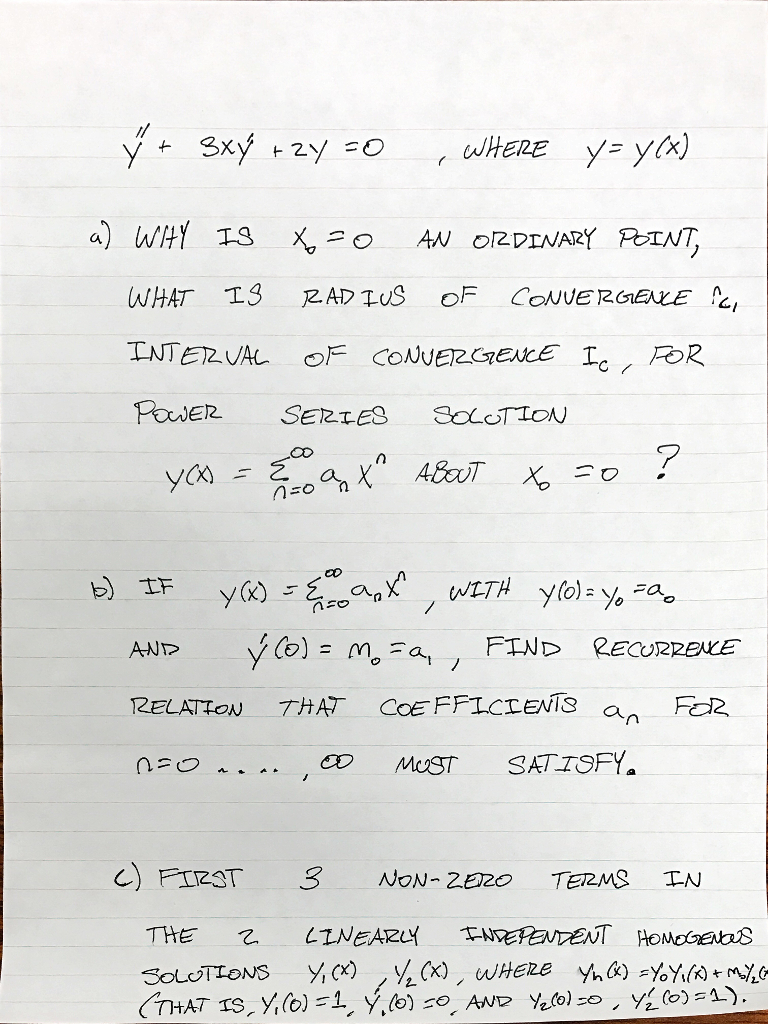 y'' + 3xy' + 2y = 0 , WHERE y = y(x)
a) WHY IS x₀ = 0 AN ORDINARY POINT,
WHAT IS RADIUS OF CONVERGENCE r_c,
INTERVAL OF CONVERGENCE I_c, FOR
POWER SERIES SOLUTION
y(x) = Σ_{n=0}^{∞} aₙxⁿ ABOUT x₀ = 0 ?
b) IF y(x) = Σ_{n=0}^{∞} aₙxⁿ , WITH y(0) = y₀ = a₀
AND y'(0) = m₀ = a₁ , FIND RECURRENCE
RELATION THAT COEFFICIENTS aₙ FOR
n=0 ...., ∞ MUST SATISFY.
c) FIRST 3 NON-ZERO TERMS IN
THE 2 LINEARLY INDEPENDENT HOMOGENOUS
SOLUTIONS y₁(x) , y₂(x) , WHERE yₕ(x) = y₀y₁(x) + m₀y₂(x
(THAT IS, y₁(0) = 1, y₁'(0) = 0, AND y₂(0) = 0 , y₂'(0) = 1).